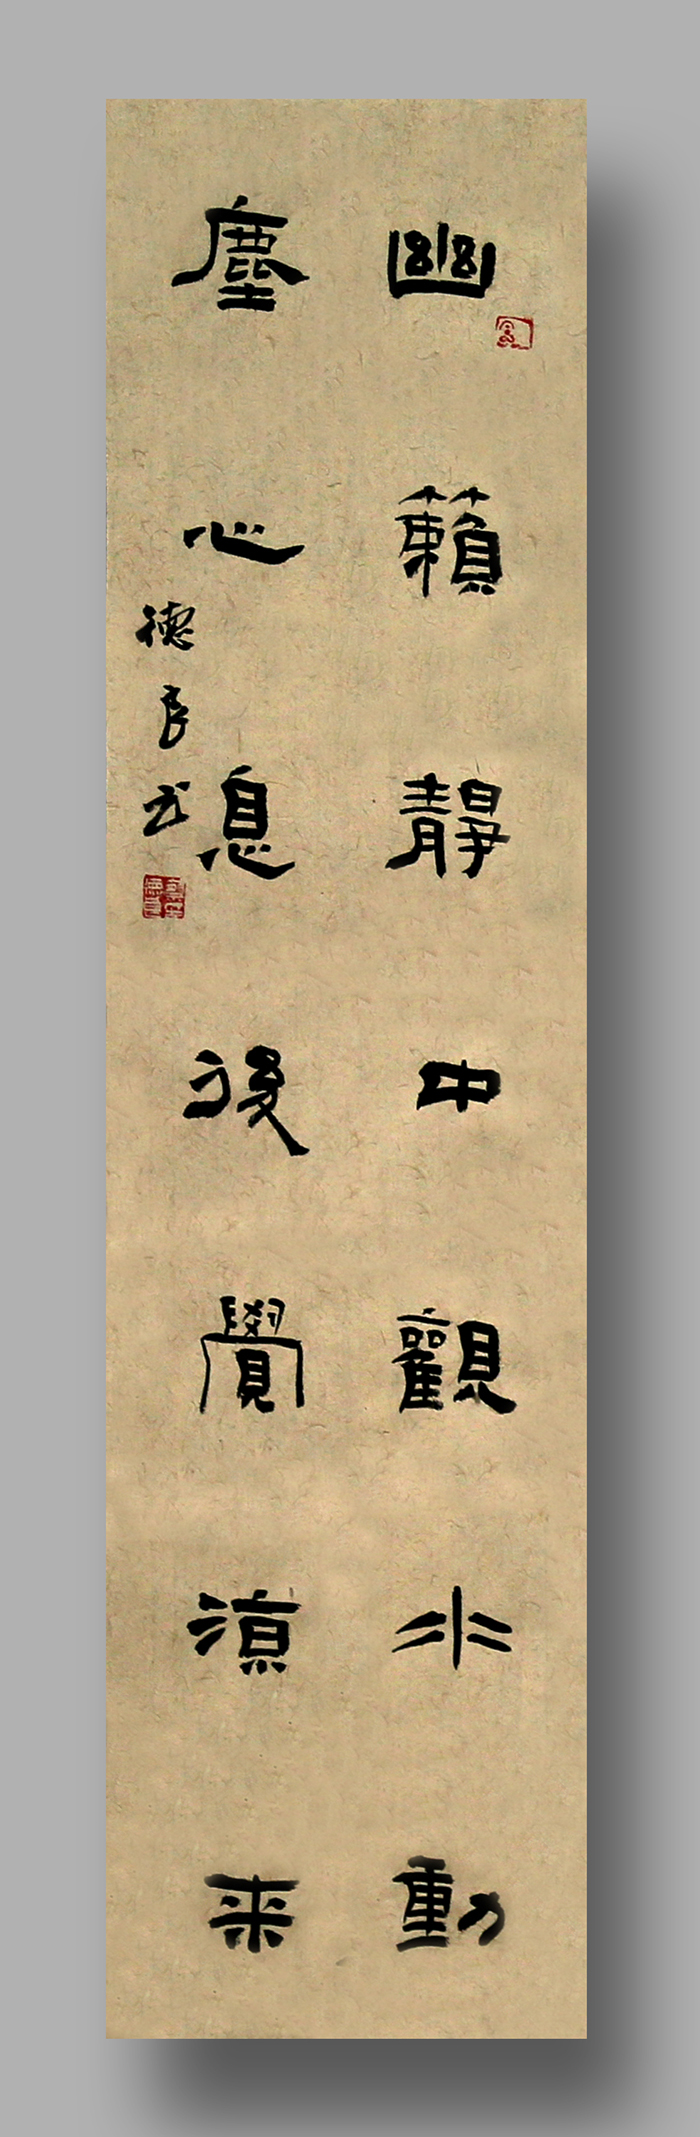 幽籟静中觀水動
塵心息後覺涼来
德良书